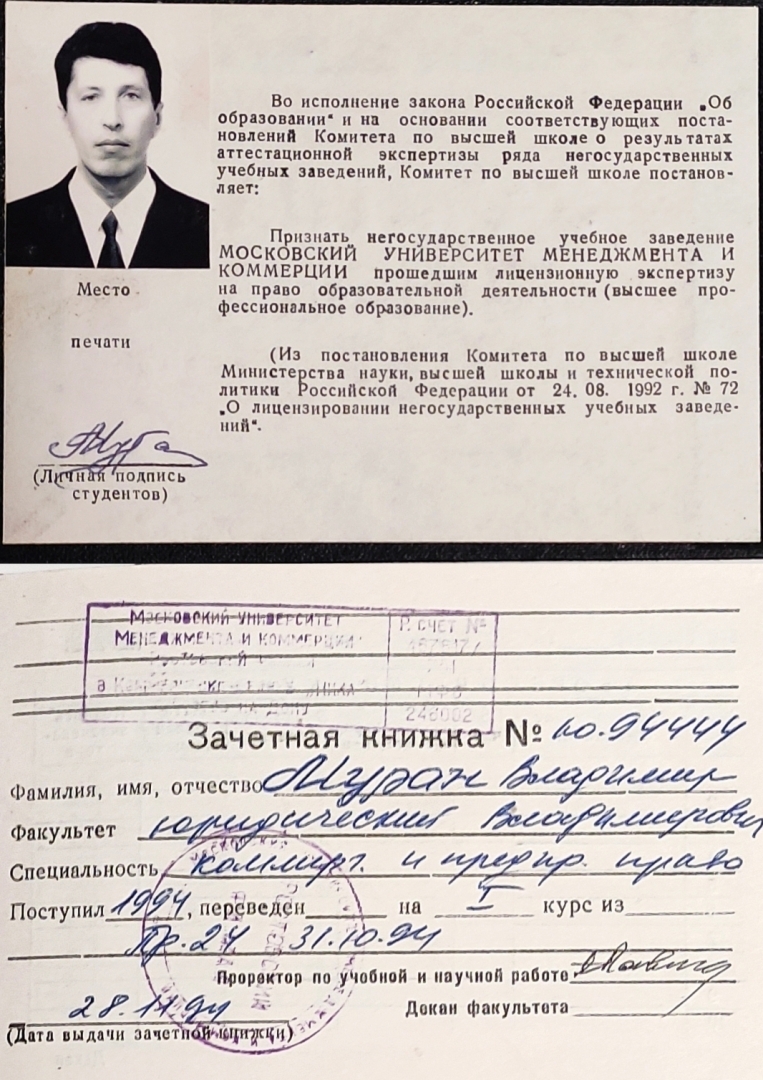 Во исполнение закона Российской Федерации „Об
образовании“ и на основании соответствующих поста-
новлений Комитета по высшей школе о результатах
аттестационной экспертизы ряда негосударственных
учебных заведений, Комитет по высшей школе постанов-
ляет:
Признать негосударственное учебное заведение
МОСКОВСКИЙ УНИВЕРСИТЕТ МЕНЕДЖМЕНТА И
КОММЕРЦИИ прошедшим лицензионную экспертизу
на право образовательной деятельности (высшее про-
фессиональное образование).
(Из постановления Комитета по высшей школе
Министерства науки, высшей школы и технической по-
литики Российской Федерации от 24. 08. 1992 г. № 72
„О лицензировании негосударственных учебных заведе-
ний“.
Место
печати
(Личная подпись
студентов)
Московский университет
Менеджмента и коммерции
Р. счет №
246002
Зачетная книжка № ю.94444
Фамилия, имя, отчество Муран Владимир
Факультет юридический Владимирович
Специальность коммерг. и предпр. право
Поступил 1994, переведен на I курс из
Пр. 24 31.10.94
Проректор по учебной и научной работе
28.11.94 Декан факультета
(Дата выдачи зачетной книжки)